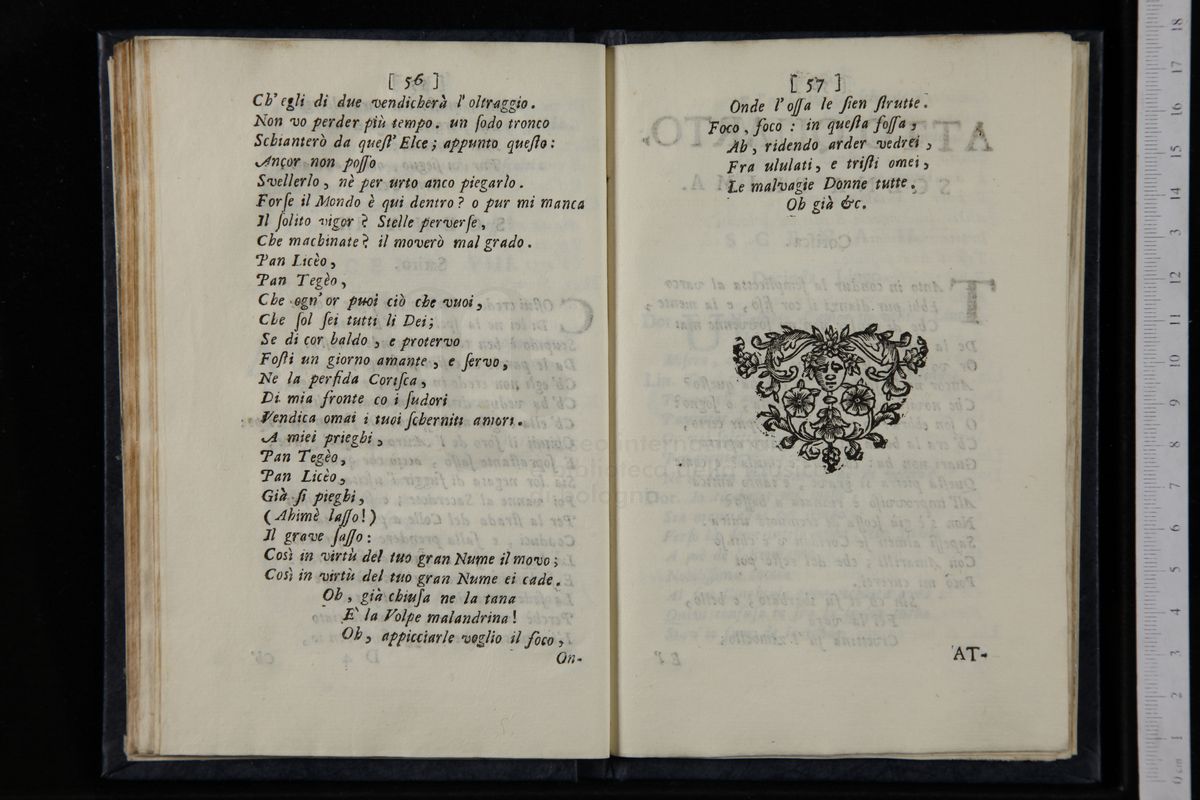 [ 56 ]
Ch' egli di due vendicherà l' oltraggio.
Non vo perder più tempo. un sodo tronco
Schianterò da quest' Elce; appunto questo:
Ancor non posso
Svellerlo, nè per urto anco piegarlo.
Forse il Mondo è qui dentro? o pur mi manca
Il solito vigor? Stelle perverse,
Che machinate? il moverò mal grado.
Pan Licèo,
Pan Tegèo,
Che ogn' or puoi ciò che vuoi,
Che sol sei tutti li Dei;
Se di cor baldo, e protervo
Fosti un giorno amante, e servo,
Ne la perfida Corisca,
Di mia fronte co i sudori
Vendica omai i tuoi scherniti amori.
A miei prieghi,
Pan Tegèo,
Pan Licèo,
Già si pieghi,
(Ahimè lasso!)
Il grave sasso:
Così in virtù del tuo gran Nume il movo;
Così in virtù del tuo gran Nume ei cade.
Oh, già chiusa ne la tana
E' la Volpe malandrina!
Oh, appicciarle voglio il foco,
On-
[ 57 ]
Onde l' ossa le sien strutte.
Foco, foco: in questa fossa,
Ah, ridendo arder vedrei,
Fra ululati, e tristi omei,
Le malvagie Donne tutte.
Oh già &c.
AT-